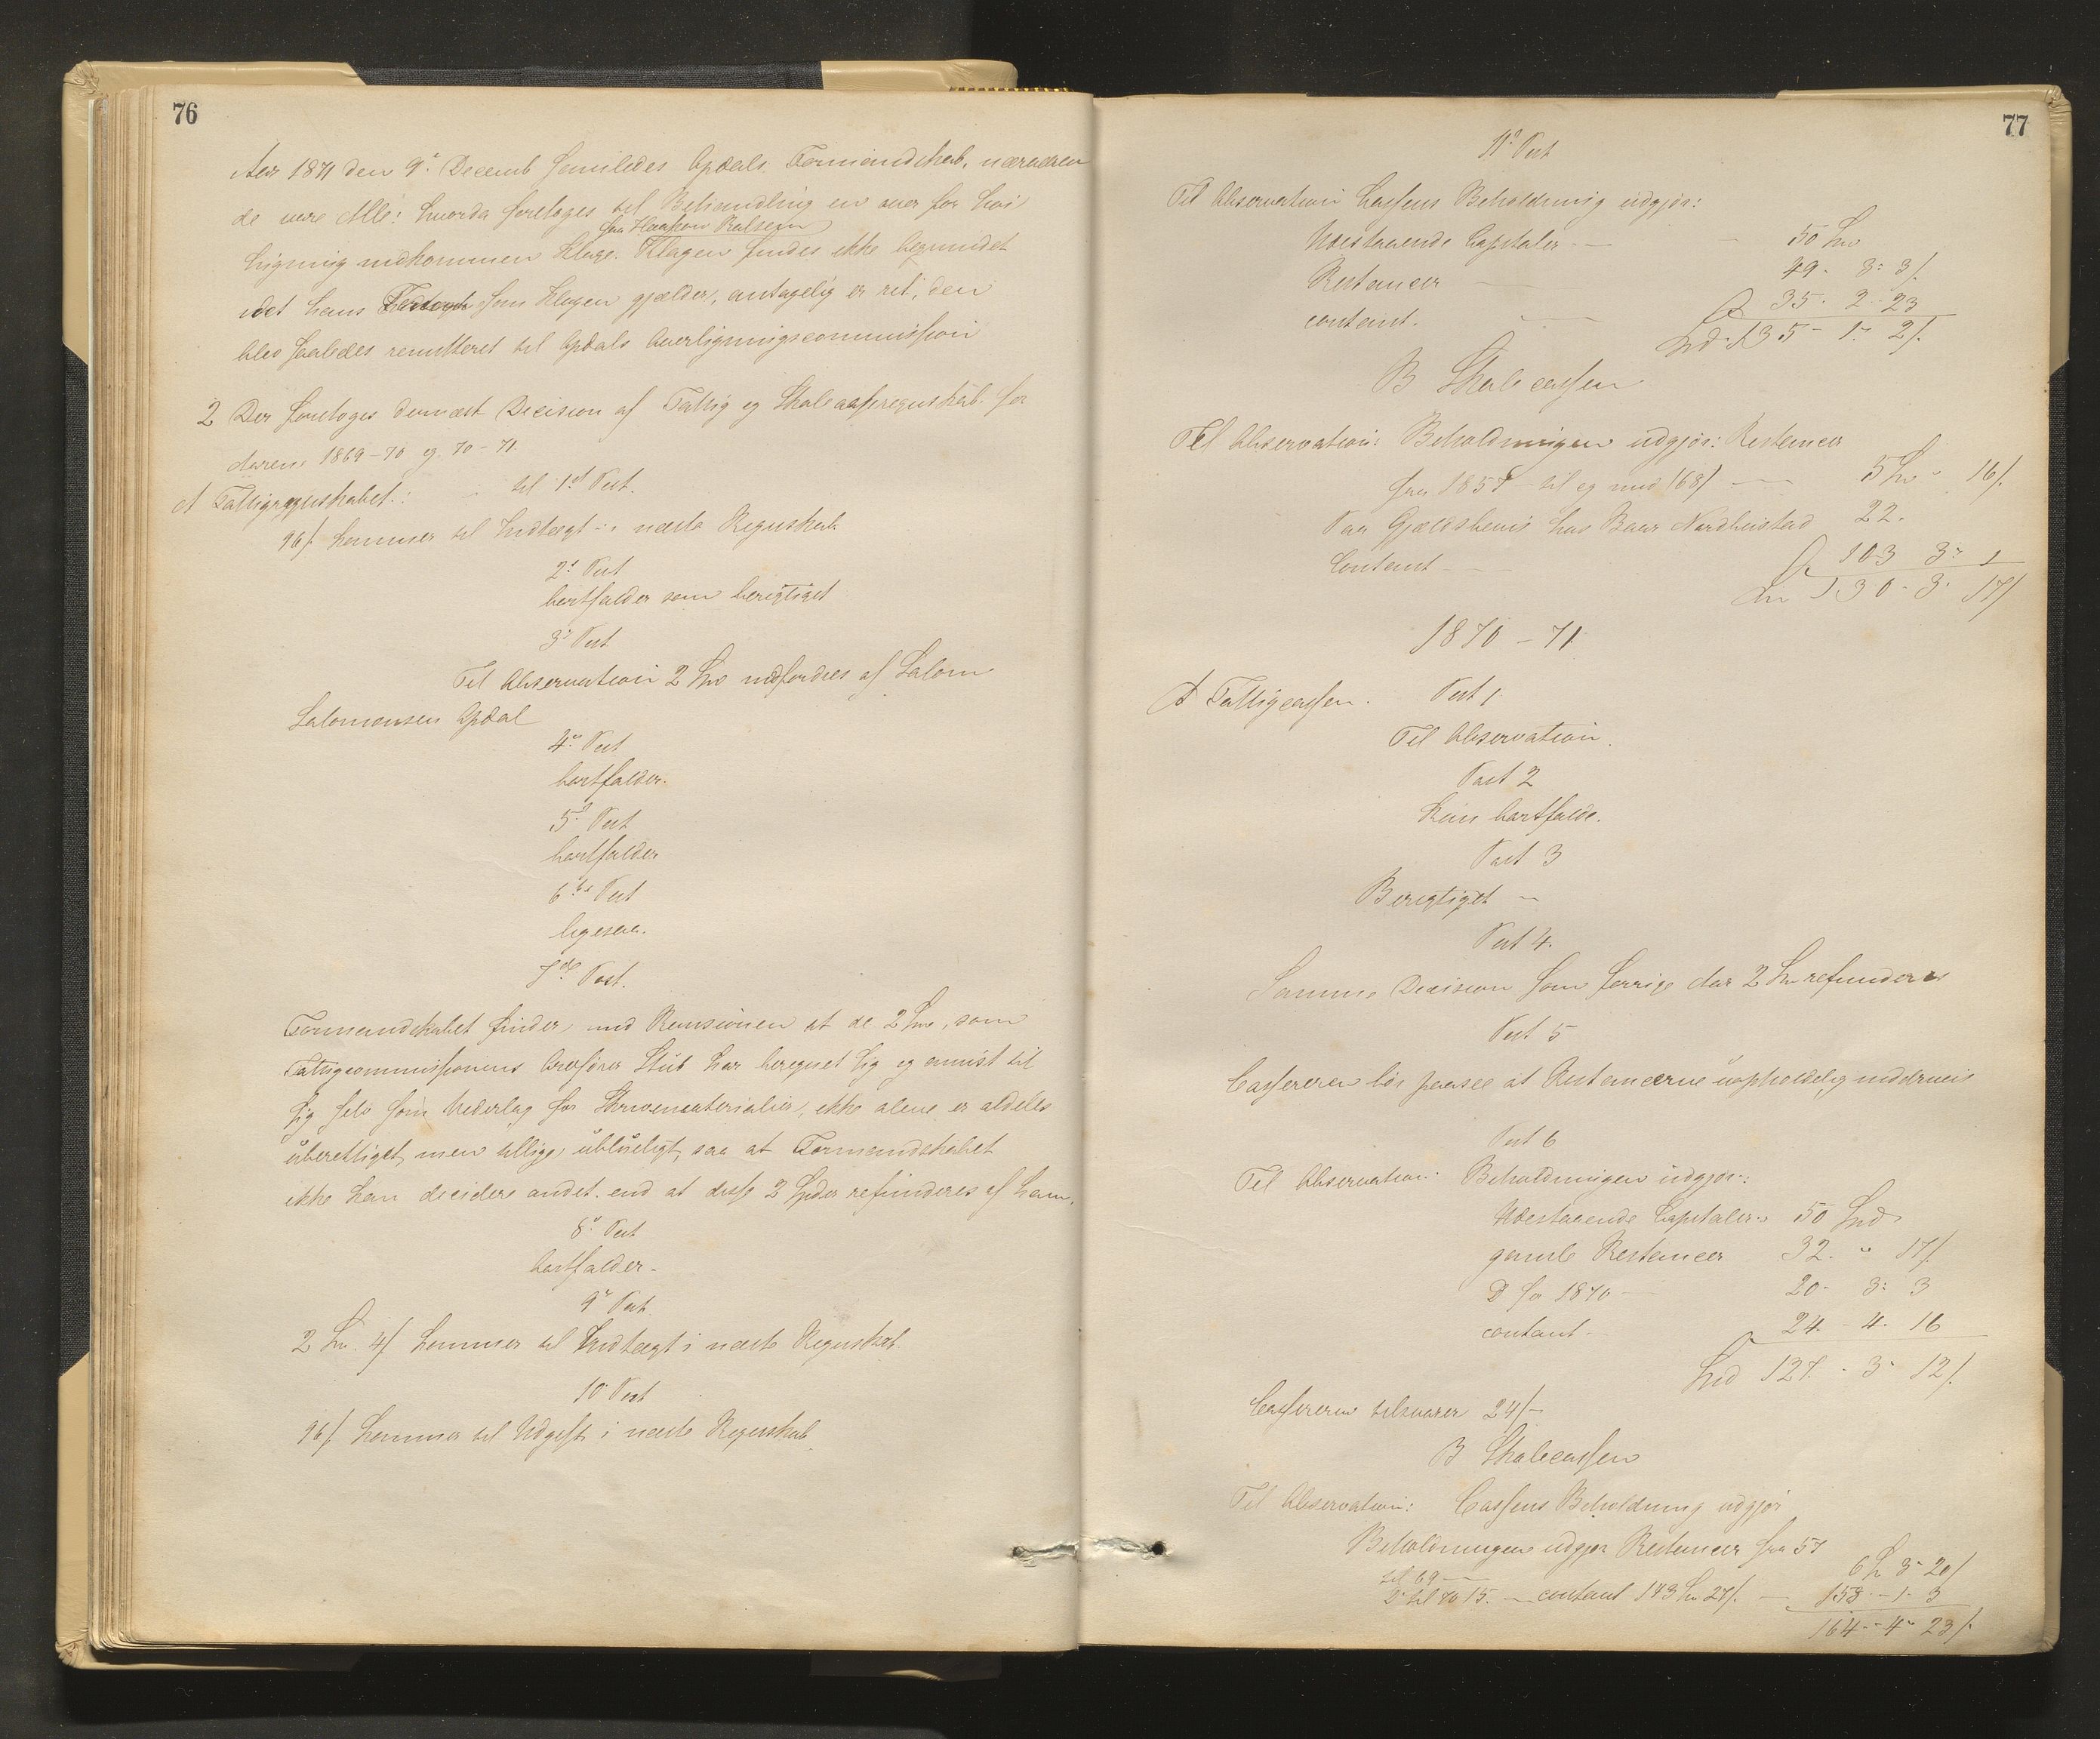 76
Aar 1871 den 9de Decemb samledes Opdals Formandskab, nærværen
de vare Alle: hvorda foretoges til Behandling en over for høi
fra Haakon
Ligning indkommen Klage. Klagen findes ikke begrundet
idet hans som Klagen gjælder, antagelig er ret, den
blev saaledes remitteret til Opdals Overligningscommission
2 Der foretoges dernæst Decision af Fattig og Skolecasseregnskab for
Aarene 1869-70 og 70-71.
A Fattigregnskabet: til 1st Post.
96/ kommer til Indtægt i næste Regnskab
2d Post
bortfalder som berigtiget
3d Post
Til Observation 2 Spd indfordres af Salom
Salomonsen Opdal
4de Post
bortfalder.
5te Post
bortfalder
6te Post
ligesaa.
7de Post.
Formandskabet finder med Revisionen at de 2 Spd, som
Fattigcommissionens Ordfører Stub har beregnet sig og anvist til
sig selv som Vederlag for Skrivematerialier, ikke alene er aldeles
uberettiget, men tillige ublueligt, saa at Formandskabet
ikke kan decidere andet end at disse 2 Spdlr refunderes af ham.
8de Post
bortfalder.
9de Post
2 Spd. 4/ kommer til Indtægt i næste Regnskab.
10 Post
96/ kommer til Udgift i næste Regnskab
77
11te Post
Til Observation Cassens Beholdning udgjør:
Udestaaende Capitaler — 50 Spd
Restancer — 49. 3: 3/
contant. — 35. 2. 23
Spd. 135 - 1 - 2/.
B Skolecassen
Til Observation: Beholdningen udgjør: Restancer
fra 1857 til og med 168/ — 5 Spd " 16/.
Paa Gjældsbevis hos Baar Nordbustad 22.
Contant — 103 3: 1
Spd 130 - 3. 17/
1870 - 71
A Fattigcassen. Post 1.
Til Observation.
Post 2
Kan bortfalde.
Post 3
Berigtiget —
Post 4.
Samme Decision som forrige Aar 2 Spd refunderes
Post 5
Cassereren bør paasee at Restancerne uopholdelig inddrives
Post 6
Til Observation: Beholdningen udgjør:
Udestaaende Capitaler: 50 Spd.
gamle Restancer 32. " 17/.
D for 1870 — 20- 3: 3
contant — 24 - 4. 16
Spd 127. - 3 - 12/.
Cassereren tilsvarer 24/—
B Skolecassen
Til Observation: Cassens Beholdning udgjør
Beholdningen udgjør Restancer fra 57
til 69 — 6 Sp 3 - 20/
Do til 70 15. — contant 143 Spd 27/. — 158 - 1 - 3
164 - 4 - 23/.